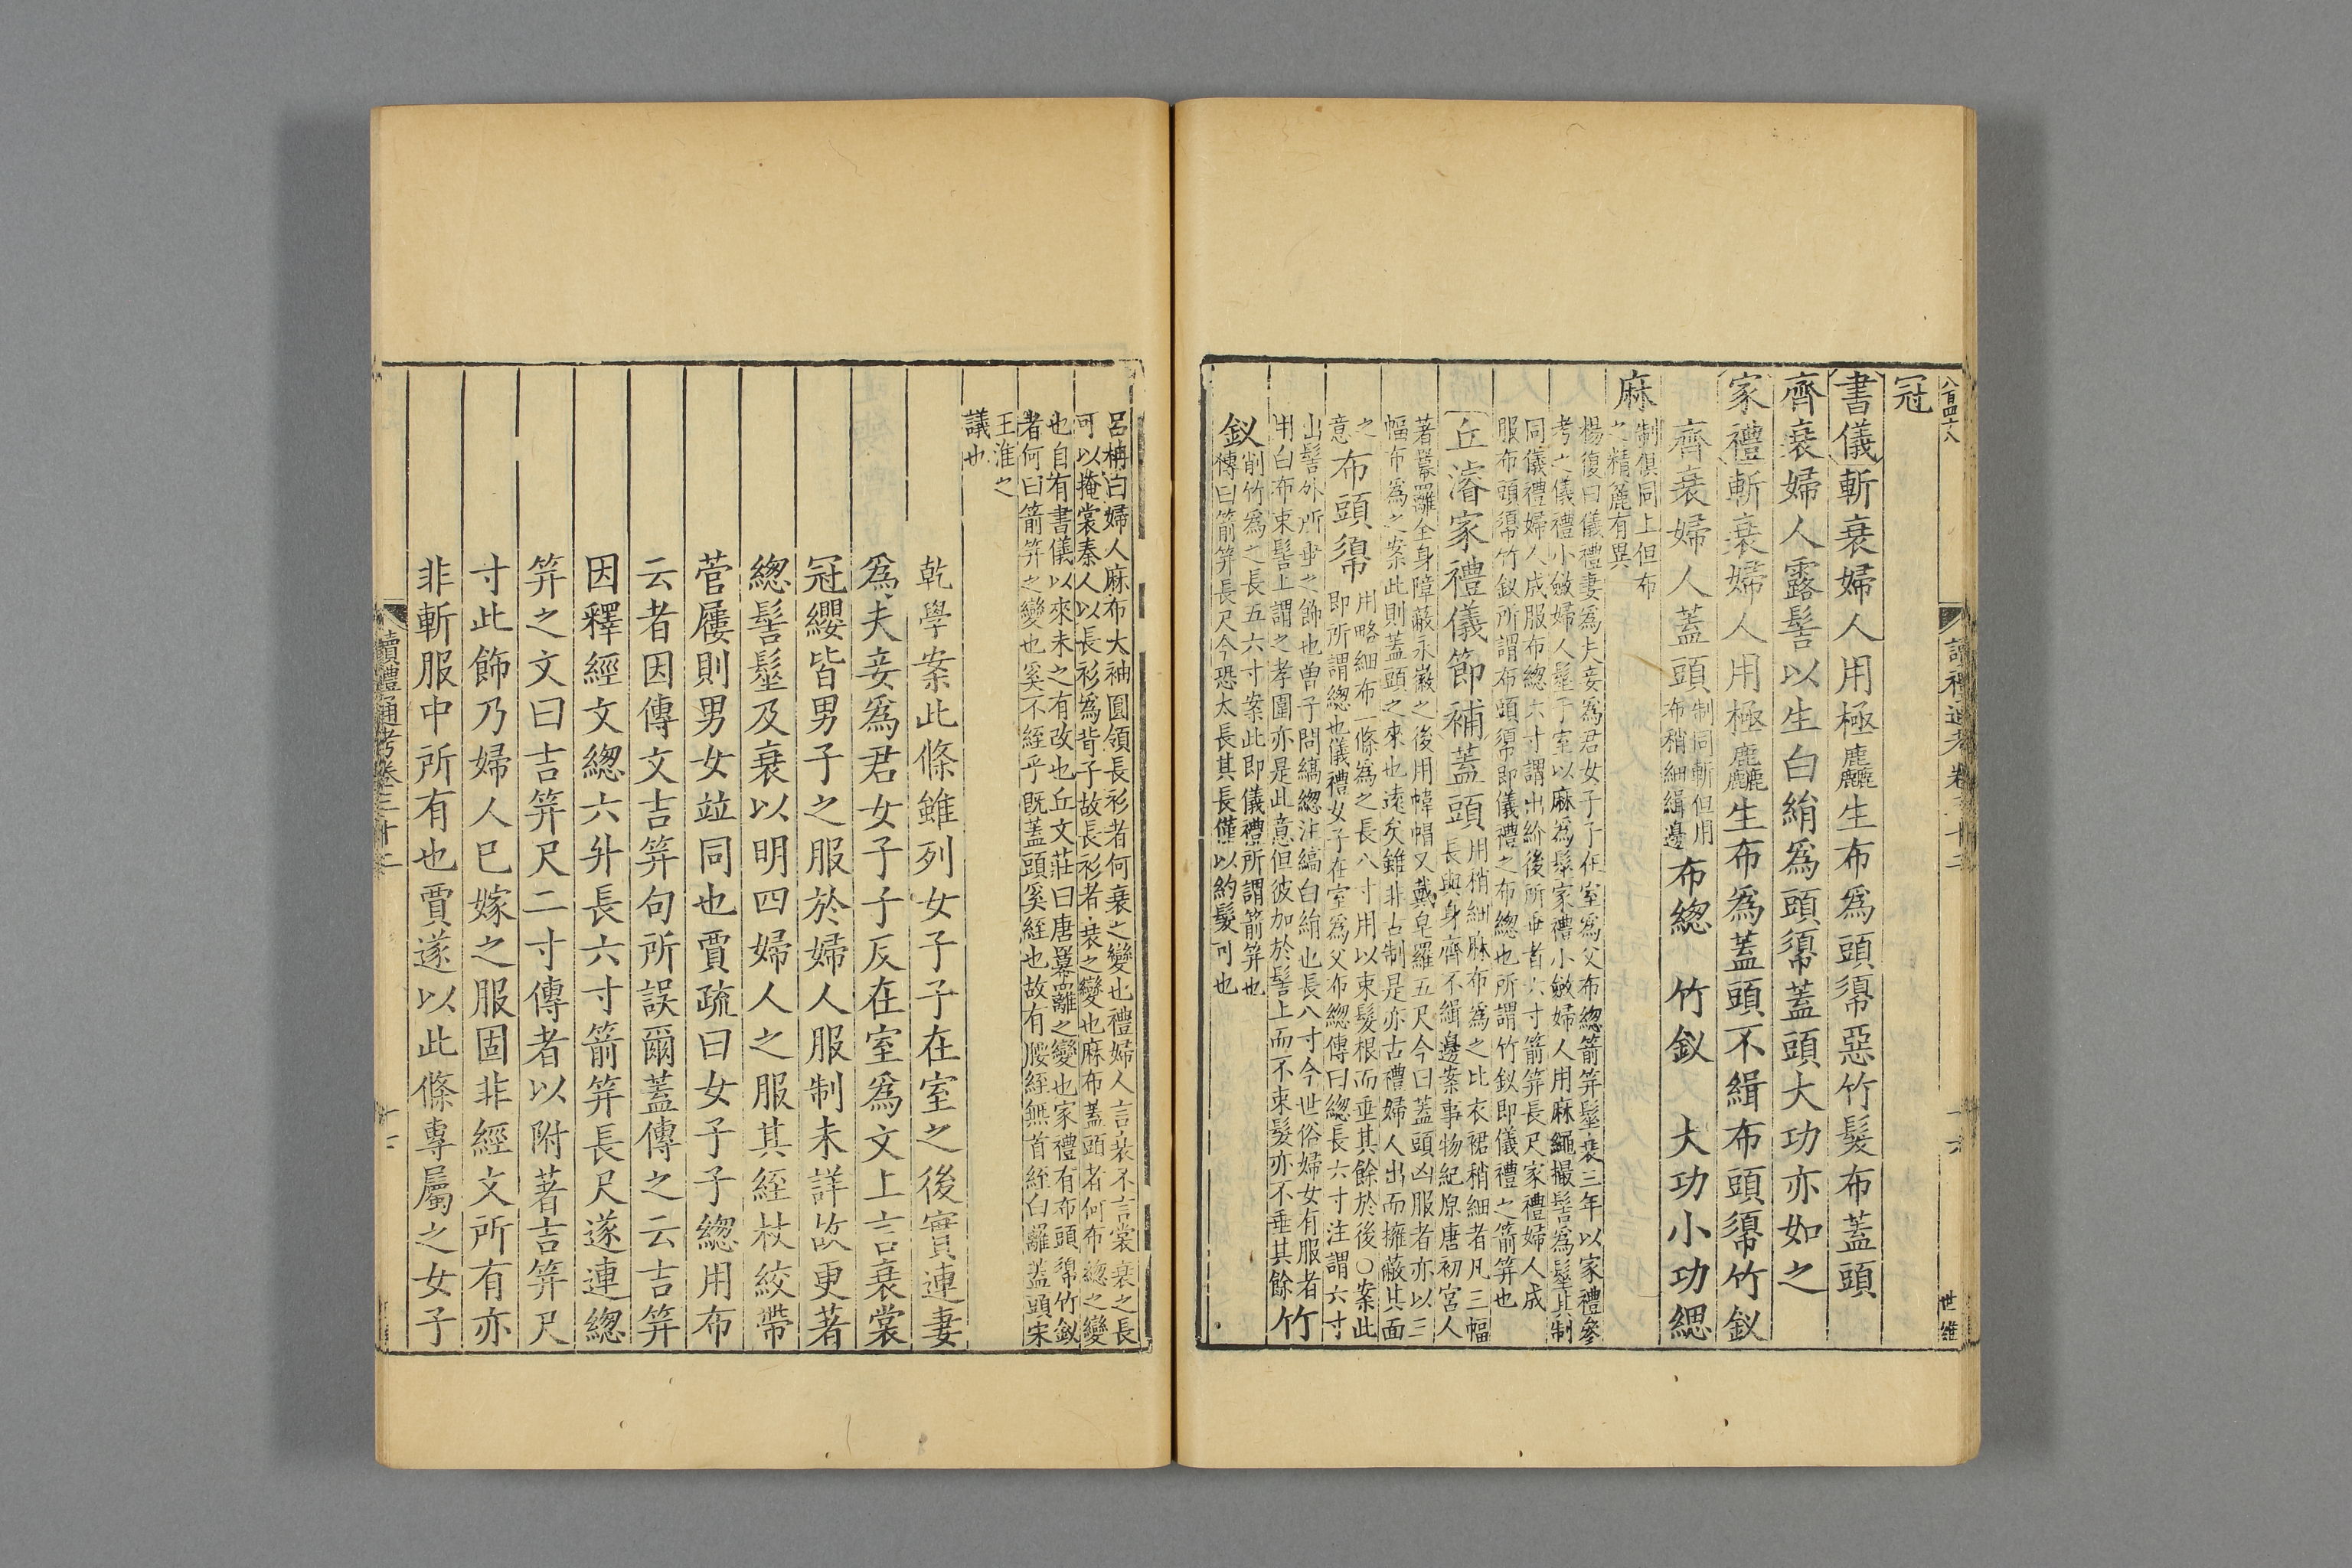 八百四十八
讀禮通考卷三十二
世維
冠
書儀斬衰婦人用極麤生布爲頭䘯惡竹髮布蓋頭
齊衰婦人露髻以生白絹爲頭䘯蓋頭大功亦如之
家禮斬衰婦人用極麤生布爲蓋頭不緝布頭䘯竹釵
齊衰婦人蓋頭制同斬但用
布稍細緝邊布緦　竹釵　大功小功緦
麻制俱同上但布
之精麤有異
楊復曰儀禮妻爲夫妾爲君女子子在室爲父布總箭笄髽衰三年以家禮參
考之儀禮小斂婦人髽于室以麻爲髽家禮小斂婦人用麻繩撮髻爲髽其制
同儀禮婦人成服布總六寸謂出紒後所垂者六寸箭笄長尺家禮婦人成
服布頭䘯竹釵所謂布頭䘯即儀禮之布總也所謂竹釵即儀禮之箭笄也
丘濬家禮儀節補蓋頭用稍細麻布爲之比衣裙稍細者凡三幅
長與身齊不緝邊案事物紀原唐初宮人
著羃䍦全身障蔽永徽之後用幃帽又戴皂羅五尺今曰蓋頭凶服者亦以三
幅布爲之案此則蓋頭之來也遠矣雖非古制是亦古禮婦人出而擁蔽其面
之
意布頭䘯用略細布一條爲之長八寸用以束髮根而垂其餘於後〇案此
即所謂總也儀禮女子在室爲父布總傳曰總長六寸注謂六寸
出髻外所垂之飾也曾子問縞總注縞白絹也長八寸今世俗婦女有服者
用白布束髻上謂之孝圍亦是此意但彼加於髻上而不束髮亦不垂其餘竹
釵削竹爲之長五六寸案此即儀禮所謂箭笄也
傳曰箭笄長尺今恐太長其長僅以約髮可也
呂柟曰婦人麻布大袖圓領長衫者何衰之變也禮婦人言衰不言裳衰之長
可以掩裳秦人以長衫爲背子故長衫者衰之變也麻布蓋頭者何布總之變
也自有書儀以來未之有改也丘文莊曰唐羃䍦之變也家禮有布頭䘯竹釵
者何曰箭笄之變也奚不絰乎既蓋頭奚絰也故有腰絰無首絰白羅蓋頭宋
王淮之
議也
乾學案此條雖列女子子在室之後實連妻
爲夫妾爲君女子子反在室爲文上言衰裳
冠纓皆男子之服於婦人服制未詳故更著
緫髻髽及衰以明四婦人之服其絰杖絞帶
菅屨則男女竝同也賈疏曰女子子緫用布
云者因傳文吉笄句所誤爾蓋傳之云吉笄
因釋經文緫六升長六寸箭笄長尺遂連緫
笄之文曰吉笄尺二寸傳者以附著吉笄尺
寸此飾乃婦人已嫁之服固非經文所有亦
非斬服中所有也賈遂以此條專屬之女子
讀禮通考卷三十二
十二